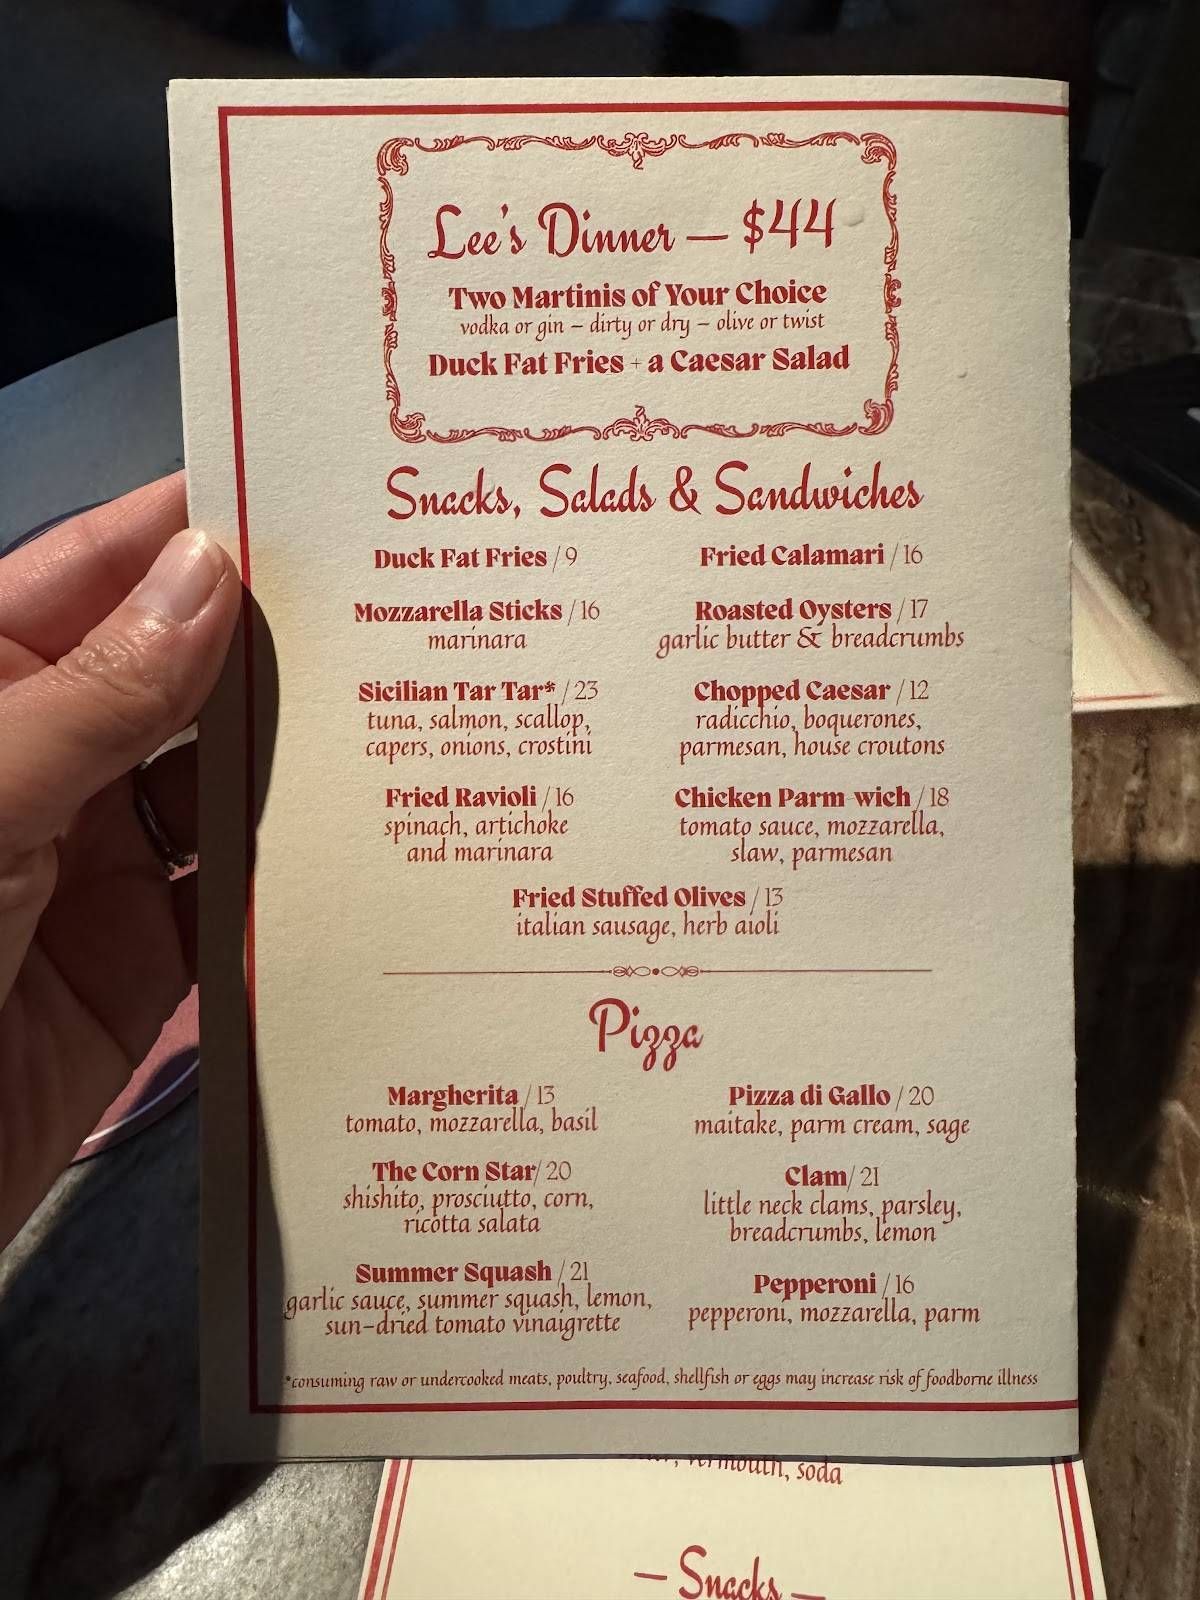 Lee's Dinner — $44
Two Martinis of Your Choice
vodka or gin – dirty or dry – olive or twist
Duck Fat Fries + a Caesar Salad
Snacks, Salads & Sandwiches
Duck Fat Fries / 9
Mozzarella Sticks / 16
marinara
Sicilian Tar Tar* / 23
tuna, salmon, scallop,
capers, onions, crostini
Fried Ravioli / 16
spinach, artichoke
and marinara
Fried Calamari / 16
Roasted Oysters / 17
garlic butter & breadcrumbs
Chopped Caesar / 12
radicchio, boquerones,
parmesan, house croutons
Chicken Parm-wich / 18
tomato sauce, mozzarella,
slaw, parmesan
Fried Stuffed Olives / 13
italian sausage, herb aioli
Pizza
Margherita / 13
tomato, mozzarella, basil
The Corn Star/ 20
shishito, prosciutto, corn,
ricotta salata
Summer Squash / 21
garlic sauce, summer squash, lemon,
sun-dried tomato vinaigrette
Pizza di Gallo / 20
maitake, parm cream, sage
Clam/ 21
little neck clams, parsley,
breadcrumbs, lemon
Pepperoni / 16
pepperoni, mozzarella, parm
*consuming raw or undercooked meats, poultry, seafood, shellfish or eggs may increase risk of foodborne illness
vermouth, soda
— Snacks —